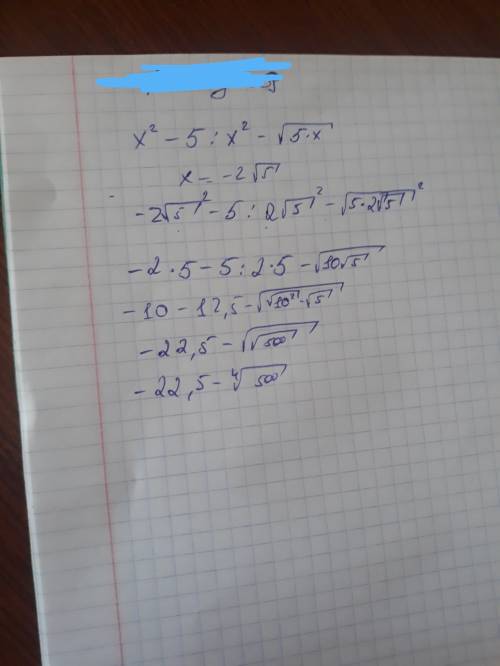 x² - 5 : x² - √5·x
x = -2√5
-2√5² - 5 : 2√5² - √5·2√5²
-2·5 - 5 : 2·5 - √10√5
-10 - 12,5 - √√10²·√5
-22,5 - √√500
-22,5 - ⁴√500